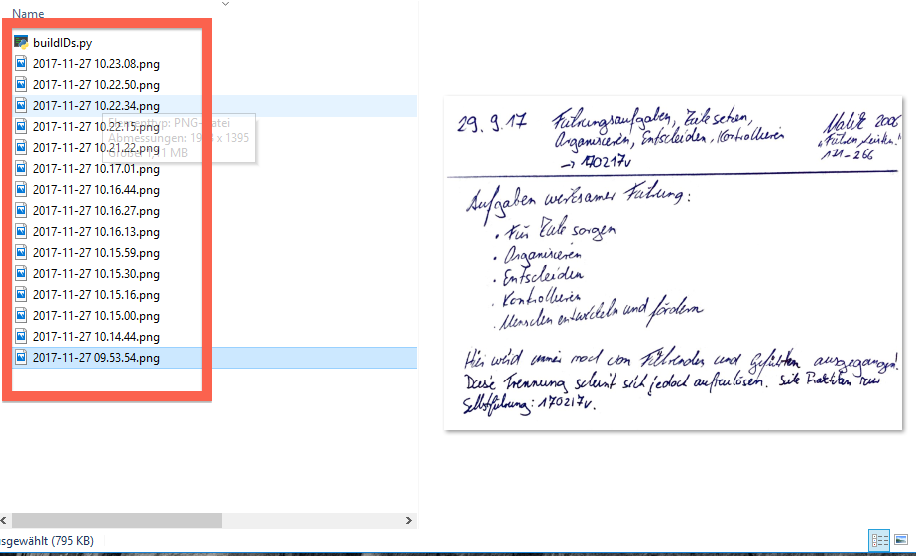 Name
buildIDs.py
2017-11-27 10.23.08.png
2017-11-27 10.22.50.png
2017-11-27 10.22.34.png
2017-11-27 10.22.15.png
2017-11-27 10.21.22.png
2017-11-27 10.17.01.png
2017-11-27 10.16.44.png
2017-11-27 10.16.27.png
2017-11-27 10.16.13.png
2017-11-27 10.15.59.png
2017-11-27 10.15.30.png
2017-11-27 10.15.16.png
2017-11-27 10.15.00.png
2017-11-27 10.14.44.png
2017-11-27 09.53.54.png
Elementtyp: PNG-Datei
Abmessungen: x 1395
Größe: MB
sgewählt (795 KB)
29.9.17 Führungsaufgaben, Ziele setzen,
Organisieren, Entscheiden, Kontrollieren
→ 170217v
Malik 2006
"Führen, Leisten."
121-266
Aufgaben wirksamer Führung:
• Für Ziele sorgen
• Organisieren
• Entscheiden
• Kontrollieren
• Menschen entwickeln und fördern
Hier wird immer noch von Führenden und Geführten ausgegangen!
Diese Trennung scheint sich jedoch aufzulösen. Siehe zur
Selbstführung: 170217v.